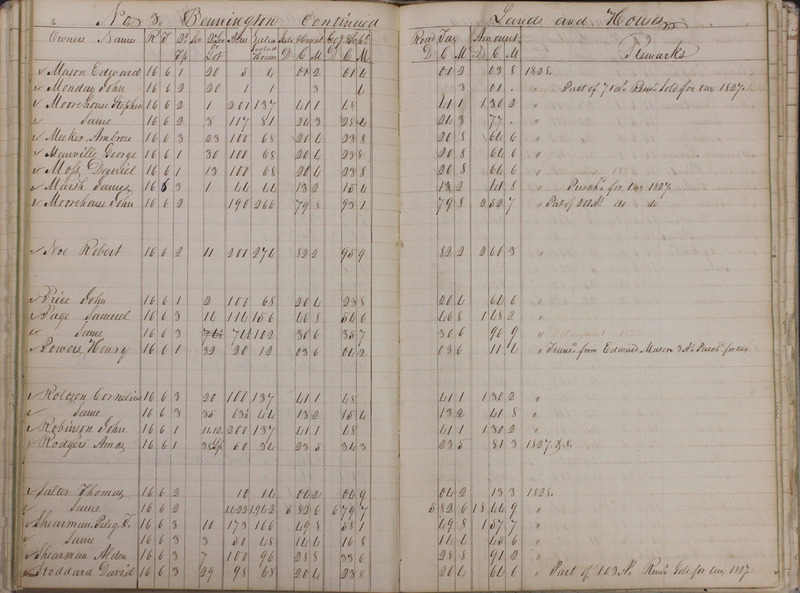 6 No 3 Bennington Continued Lands and Houses
Owners Names R T Lot Acres Houses D C M D C M Road Tax D C M Amount Ds C M Remarks
Mason Edward 16 6 1 20 5 4 01 2 01 4 01 2 03 8 1828.
Monday John 16 6 2 20 1 1 3 4 3 01 Part of 71 as. Sold for tax 1827.
Moorehouse Stephen 16 6 2 1 201 137 41 1 48 41 1 130 2 "
Same 16 6 2 8 117 81 24 3 28 4 24 3 77 "
Meeker Ambrose 16 6 3 23 100 68 20 4 23 8 20 8 64 6 "
Manville George 16 6 1 30 100 68 20 4 23 8 20 8 64 6 "
Moss Daniel 16 6 1 13 100 68 20 4 23 8 20 8 64 6 "
Marsh James 16 6 3 1 44 44 13 2 15 4 13 2 41 8 " Purchd for tax 1827.
Moorehouse John 16 6 2 190 266 79 8 93 1 79 8 252 7 " Part of 200 As. do do
Noe Robert 16 6 2 11 201 274 82 2 95 9 82 2 260 3 "
Price John 16 6 1 2 100 68 20 4 23 8 20 4 64 6 "
Page Samuel 16 6 3 14 114 156 46 8 54 6 46 8 148 2 "
Same 16 6 3 74 102 30 6 35 7 30 6 96 9 "
Powers Henry 16 6 1 32 20 12 03 6 04 2 03 6 11 4 " Trans. from Edward Mason 3 As. Purchd for tax
Roloson Cornelius 16 6 3 20 100 137 41 1 48 41 1 130 2 "
Same 16 6 3 35 63 44 13 2 15 4 13 2 41 8 "
Robinson John 16 6 1 11.12 200 137 41 1 48 41 1 130 2 "
Rodgers Amos 16 6 1 50 34 23 5 34 3 23 5 81 3 1827.&8.
Salter Thomas 16 6 2 10 14 04 2 04 9 04 2 13 3 1828.
Same 16 6 2 1423 1942 5 82 6 6 79 7 5 82 6 18 44 9 "
Shearman Peleg T. 16 6 3 10 173 166 49 8 58 1 49 8 157 7 "
Same 16 6 3 3 50 48 14 4 16 8 14 4 45 6 "
Shearman Alden 16 6 3 7 100 96 28 8 33 6 28 8 91 2 "
Stoddard David 16 6 3 29 98 68 20 4 23 8 20 4 64 6 " Part of 103 As. Sold for tax 1827.